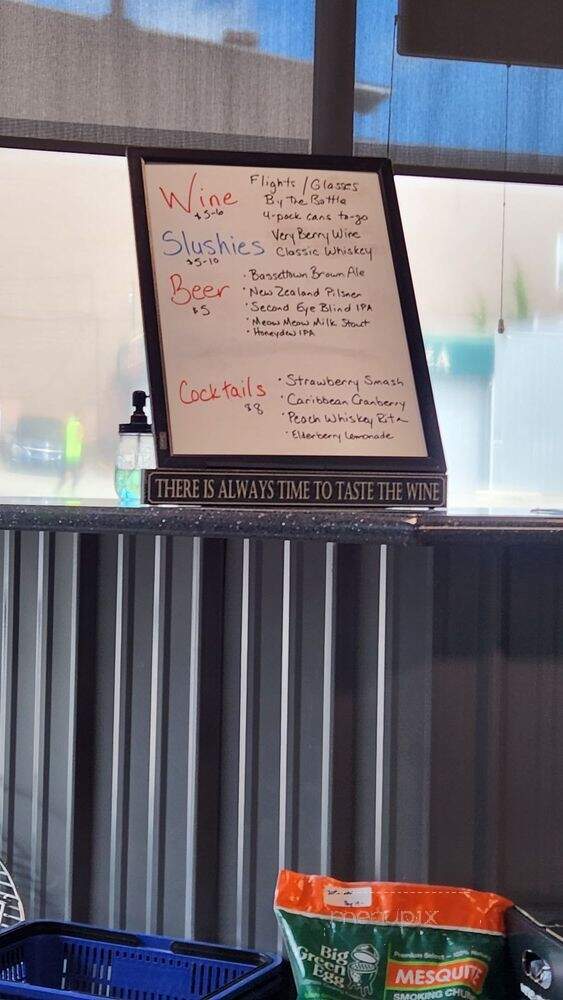 Wine Flights / Glasses
$5-6 By The Bottle
4-pack cans to-go
Slushies Very Berry Wine
$5-10 Classic Whiskey
Beer • Bassettown Brown Ale
$5 • New Zealand Pilsner
• Second Eye Blind IPA
• Meow Meow Milk Stout
• Honeydew IPA
Cocktails • Strawberry Smash
$8 • Caribbean Cranberry
• Peach Whiskey Rita
• Elderberry Lemonade
THERE IS ALWAYS TIME TO TASTE THE WINE
menupix
Big
Green
Egg
Premium Select - 100% Natural
MESQUITE
SMOKING CHU